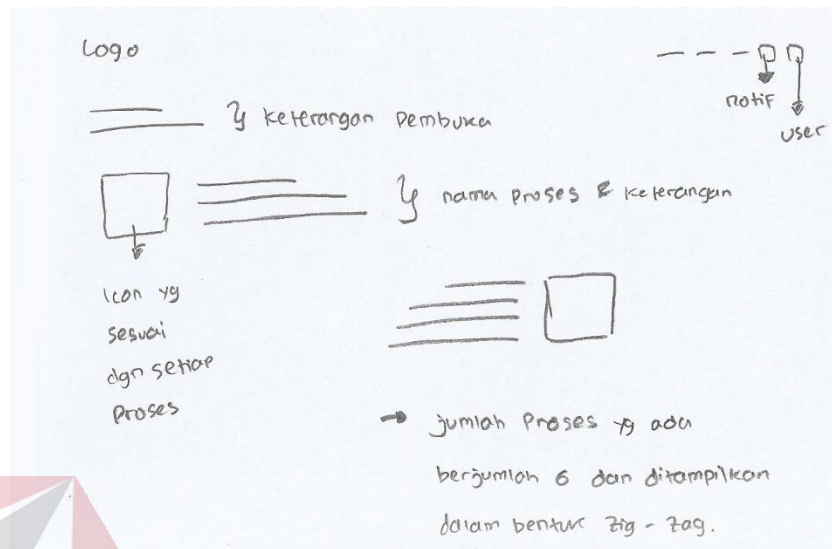 Logo
notif
user
keterangan Pembuka
nama proses & keterangan
Icon yg
sesuai
dgn setiap
Proses
jumlah Proses yg ada
berjumlah 6 dan ditampilkan
dalam bentuk zig-zag.